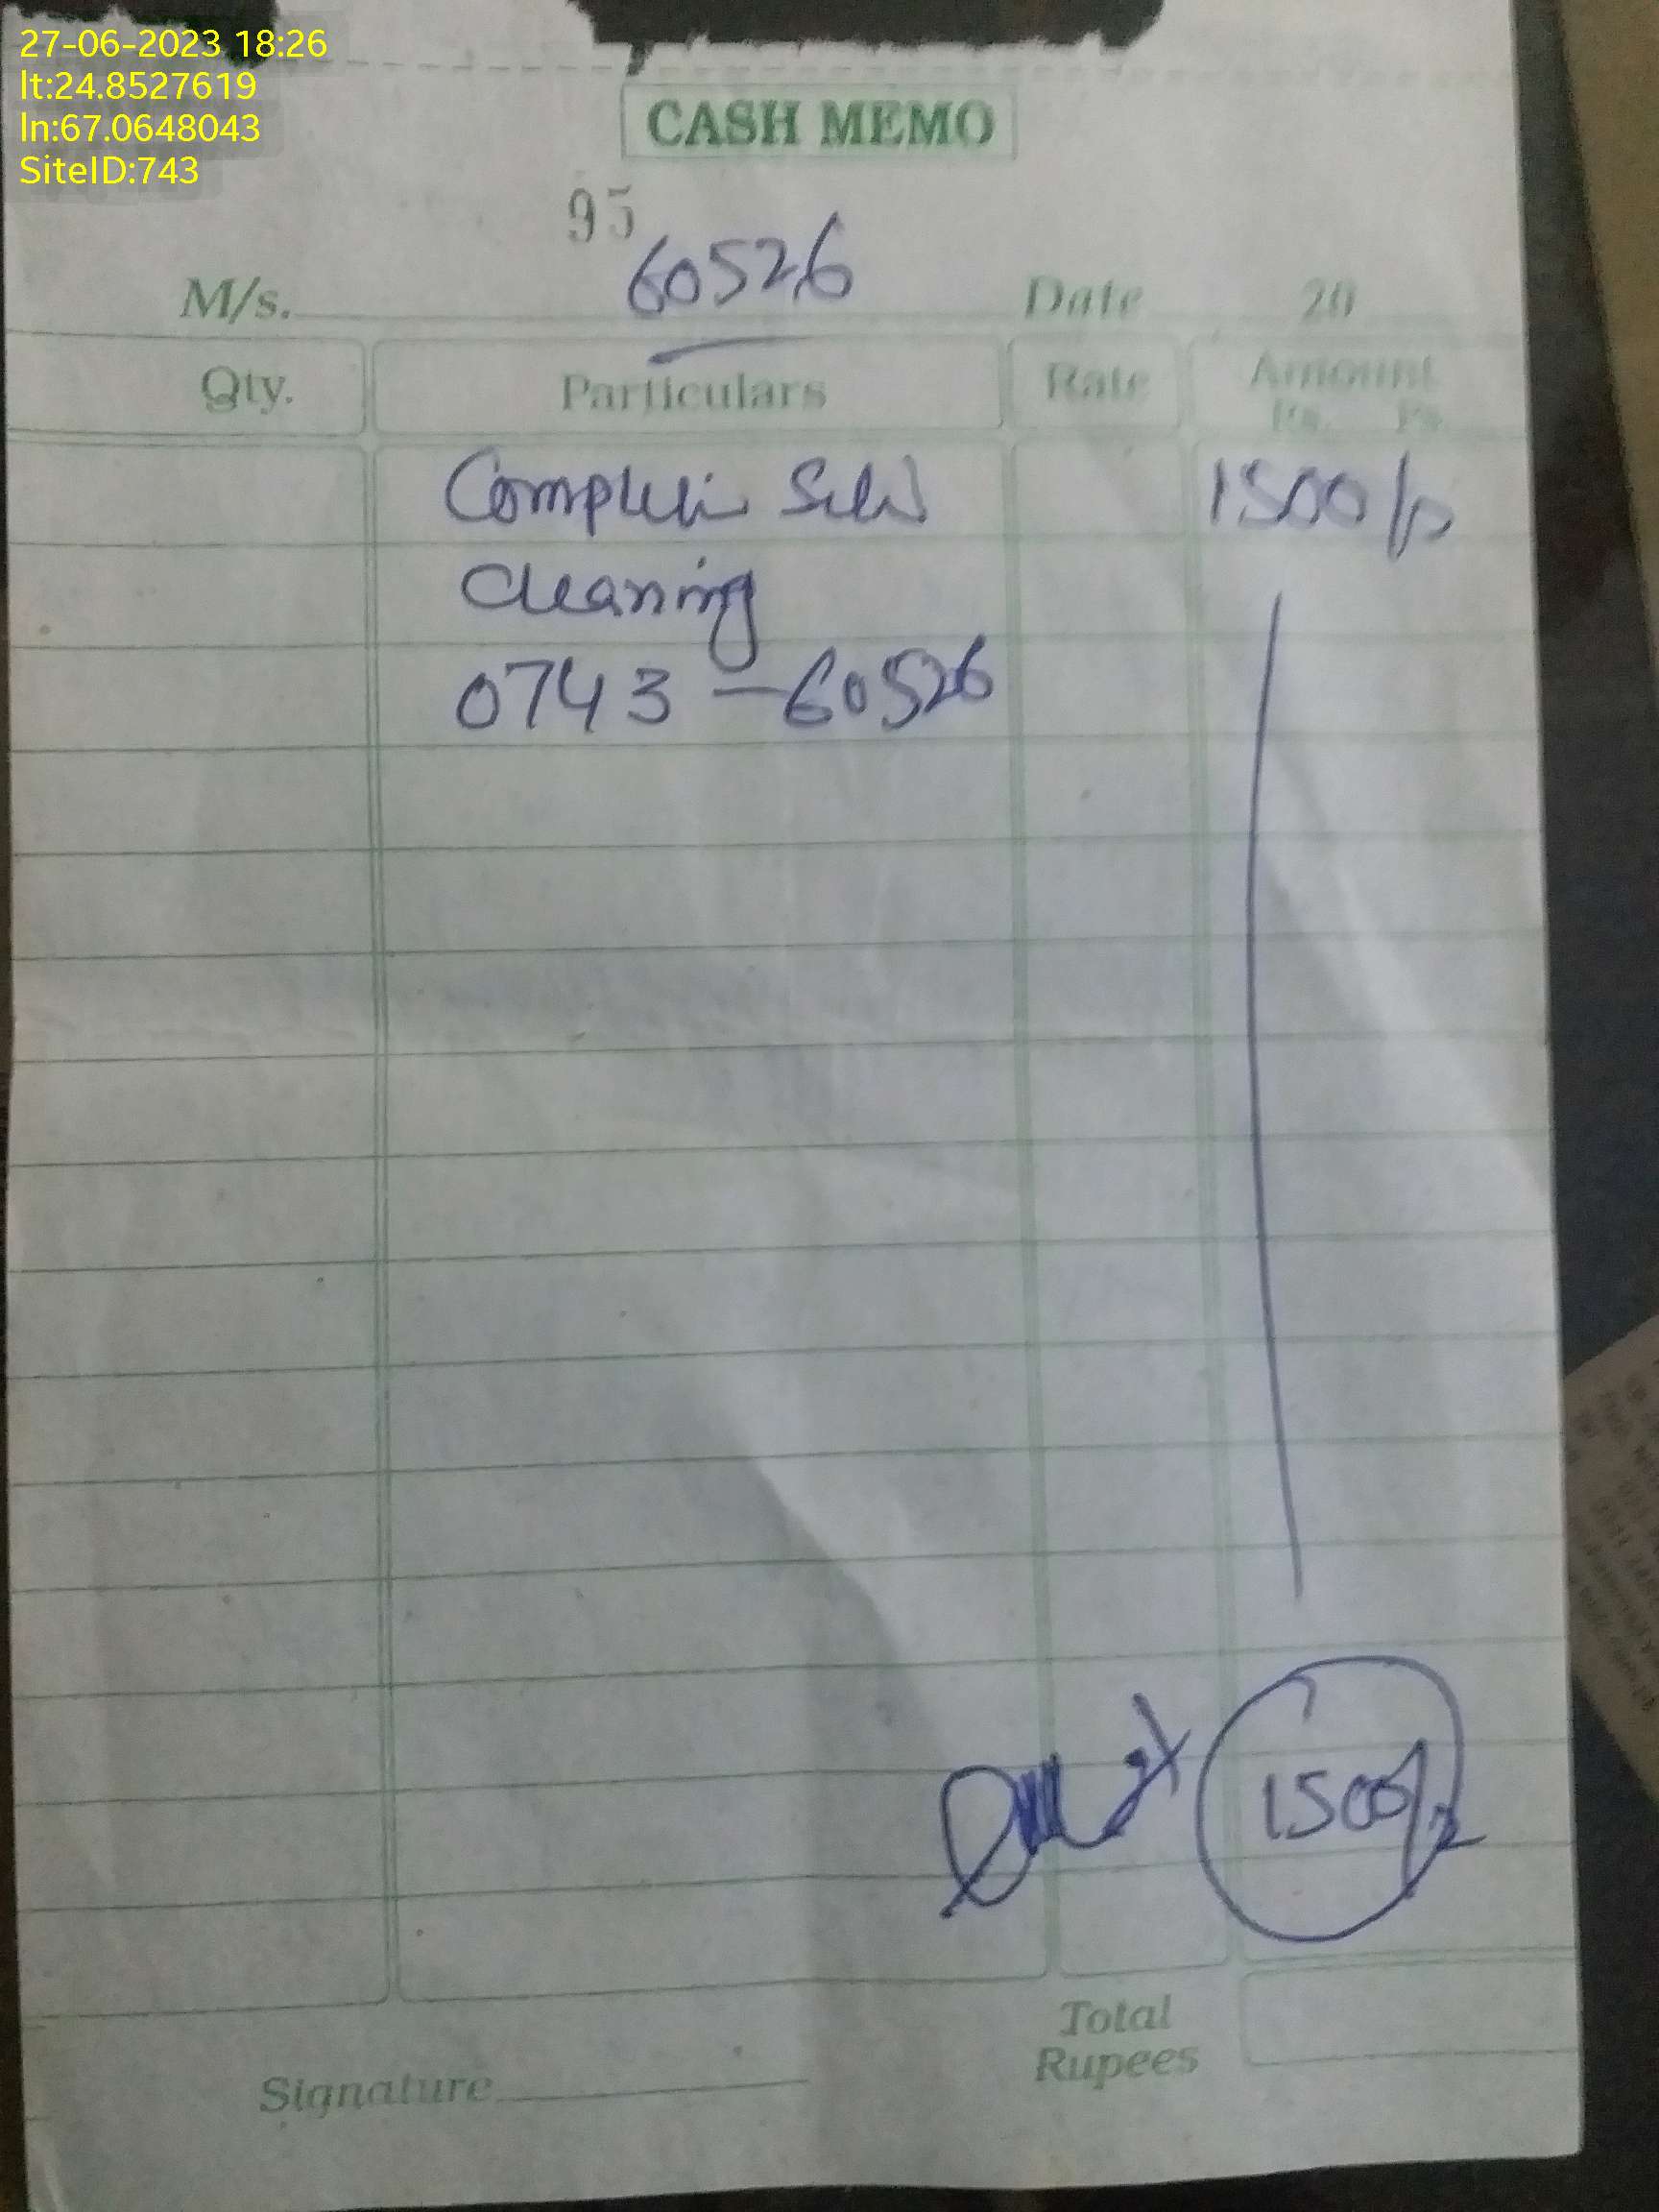 27-06-2023 18:26
lt:24.8527619
ln:67.0648043
SiteID:743
CASH MEMO
95
60526
M/s. Date 20
Qty. Particulars Rate Amount
Rs. Ps.
Complete 1500/
Cleaning
0743-60526
1500/
Total
Rupees
Signature